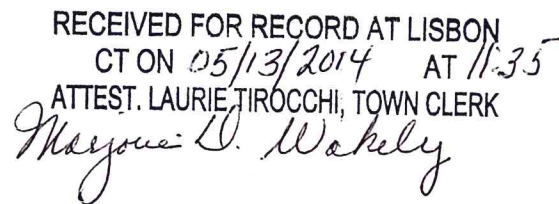 RECEIVED FOR RECORD AT LISBON
CT ON 05/13/2014 AT 11:35
ATTEST. LAURIE TIROCCHI, TOWN CLERK
Marjorie D. Wakely